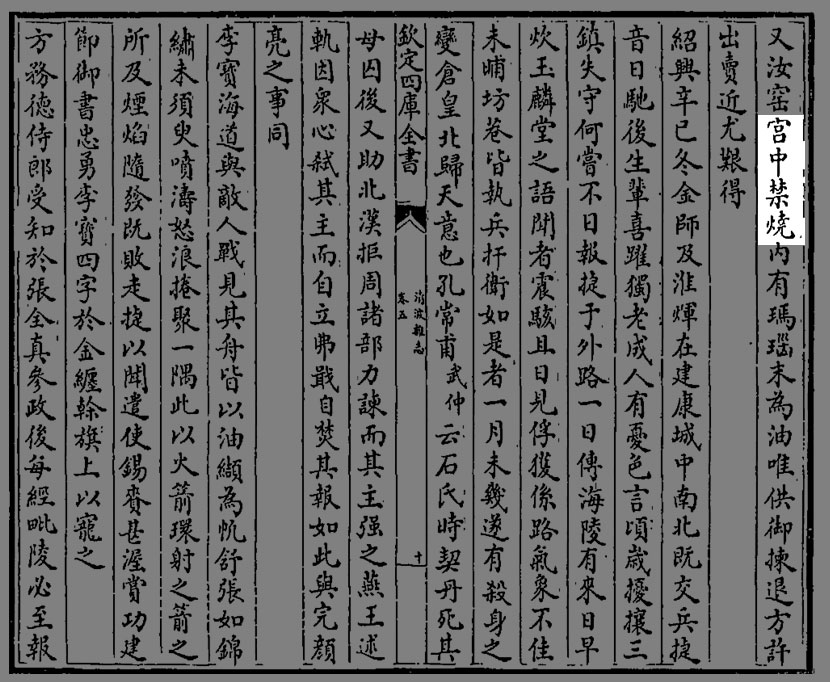 又汝窑宫中禁燒内有瑪瑙末為油唯供御揀退方許
出賣近尤艱得
紹興辛巳冬金師及淮煇在建康城中南北既交兵捷
音日馳後生輩喜躍獨老成人有憂色言頃歳擾攘三
鎮失守何嘗不日報捷于外路一日傳海陵有來日早
炊玉麟堂之語聞者震駭且日見俘獲係路氣象不佳
未晡坊巷皆執兵扞衛如是者一月未幾遂有殺身之
變倉皇北歸天意也孔常甫武仲云石氏時契丹死其
欽定四庫全書
清波雜志
卷五
十
母囚後又助北漢拒周諸部力諫而其主强之燕王述
軌因衆心弑其主而自立弗戢自焚其報如此與完顔
亮之事同
李寳海道與敵人戰見其舟皆以油纈為帆舒張如錦
繡未須臾噴濤怒浪捲聚一隅此以火箭環射之箭之
所及煙焰隨發既敗走捷以聞遣使錫賚甚渥賞功建
節御書忠勇李寳四字於金纏榦旗上以寵之
方務德侍郎受知於張全真參政後每經毗陵必至報